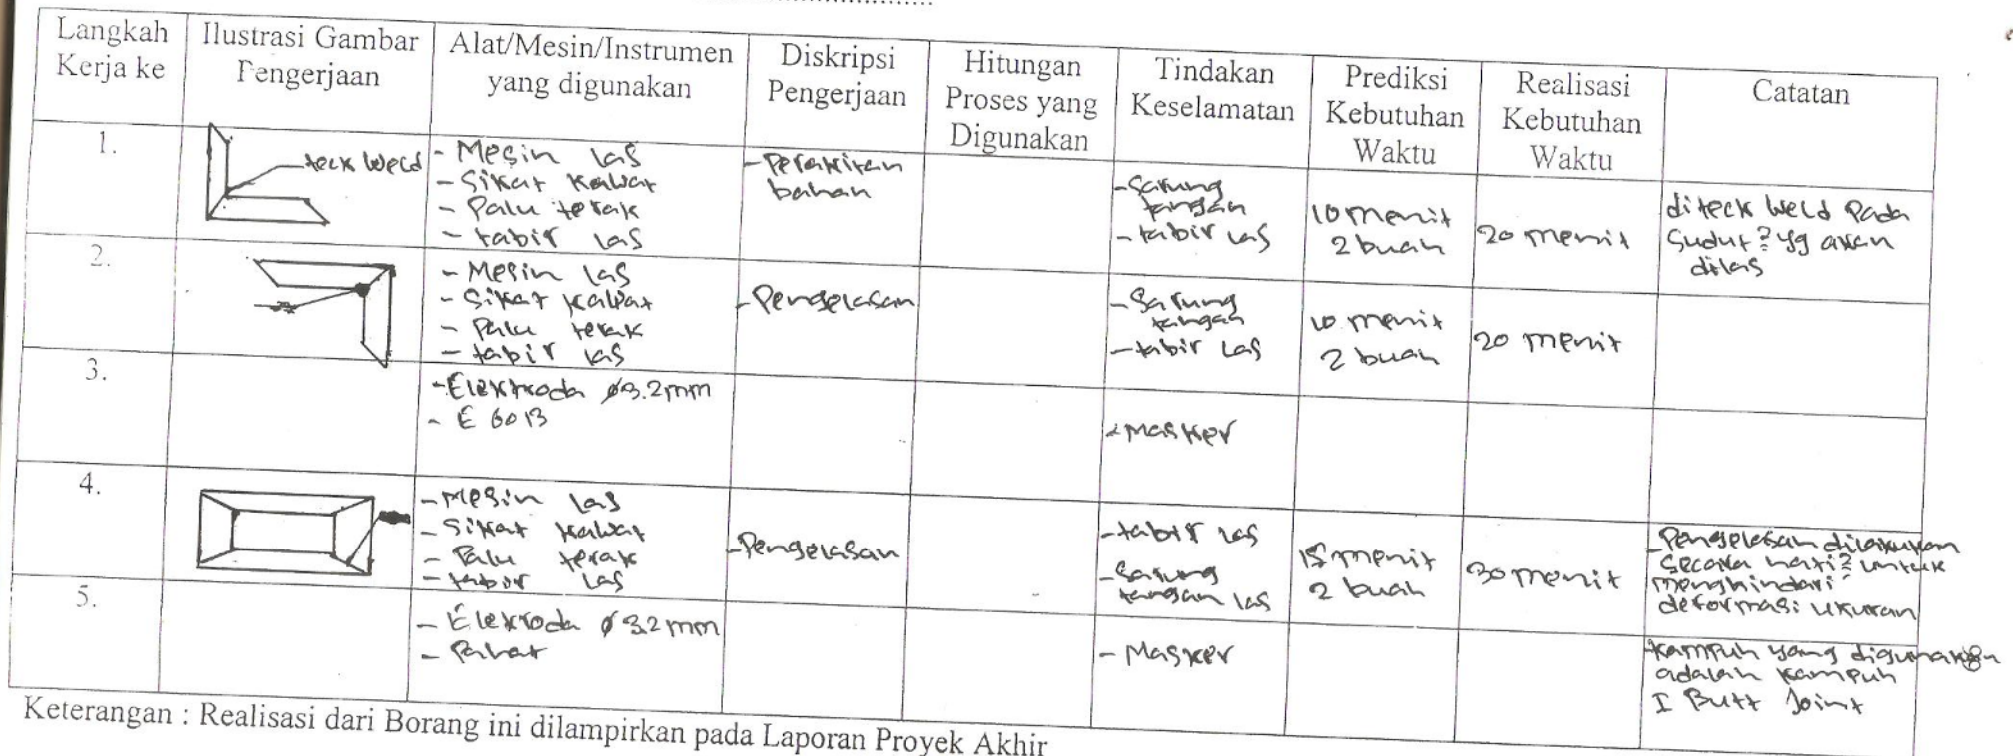 Langkah Kerja ke
Ilustrasi Gambar Pengerjaan
Alat/Mesin/Instrumen yang digunakan
Diskripsi Pengerjaan
Hitungan Proses yang Digunakan
Tindakan Keselamatan
Prediksi Kebutuhan Waktu
Realisasi Kebutuhan Waktu
Catatan
1.
teck weld
- Mesin las
- Sikat kawat
- Palu terak
- tabir las
- Perakitan
bahan
- Sarung
tangan
- tabir las
10 menit
2 buah
20 menit
diteck weld pada
sudut² yg akan
dilas
2.
- Mesin las
- Sikat kawat
- Palu terak
- tabir las
- Pengelasan
- Sarung
tangan
- tabir las
10 menit
2 buah
20 menit
3.
- Elektroda ø3.2mm
- E 6013
- Masker
4.
- Mesin las
- Sikat kawat
- Palu terak
- tabir las
- Pengelasan
- tabir las
- Sarung
tangan las
15 menit
2 buah
30 menit
- Pengelasan dilakukan
secara hati² untuk
menghindari
deformasi ukuran
5.
- Elektroda ø 3.2 mm
- Pahat
- Masker
- kampuh yang digunakan
adalah kampuh
I Butt Joint
Keterangan : Realisasi dari Borang ini dilampirkan pada Laporan Proyek Akhir